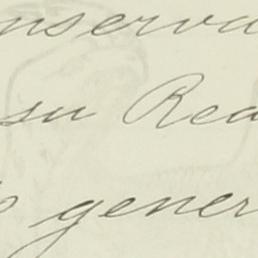 nserva
su Rea
gener